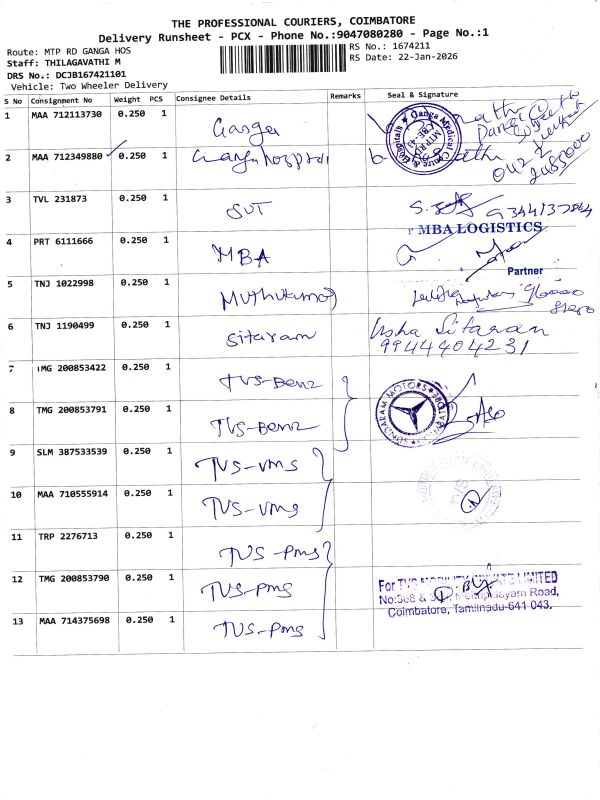 THE PROFESSIONAL COURIERS, COIMBATORE
Delivery Runsheet - PCX - Phone No.:9047080280 - Page No.:1
Route: MTP RD GANGA HOS
RS No.: 1674211
Staff: THILAGAVATHI M
RS Date: 22-Jan-2026
DRS No.: DCJB167421101
Vehicle: Two Wheeler Delivery
S No Consignment No Weight PCS Consignee Details Remarks Seal & Signature
1 MAA 712113730 0.250 1 Ganga
2 MAA 712349880 0.250 1 Ganga hospital
Ganga Medical Centre & Hospitals
0422
2485000
3 TVL 231873 0.250 1 SVT
9344137564
4 PRT 6111666 0.250 1 MBA
MBA LOGISTICS
Partner
5 TNJ 1022998 0.250 1 Muthukumar
6 TNJ 1190499 0.250 1 Sitaram
Usha Sitaram
9944404231
7 TMG 200853422 0.250 1 TVS-Benz
8 TMG 200853791 0.250 1 TVS-Benz
SUNDARAM MOTORS
9 SLM 387533539 0.250 1 TVS-VMS
10 MAA 710555914 0.250 1 TVS-VMS
11 TRP 2276713 0.250 1 TVS-PMS
12 TMG 200853790 0.250 1 TVS-PMS
For TVS MOBILITY PRIVATE LIMITED
Mettupalayam Road,
Coimbatore, Tamilnadu-641 043.
13 MAA 714375698 0.250 1 TVS-PMS